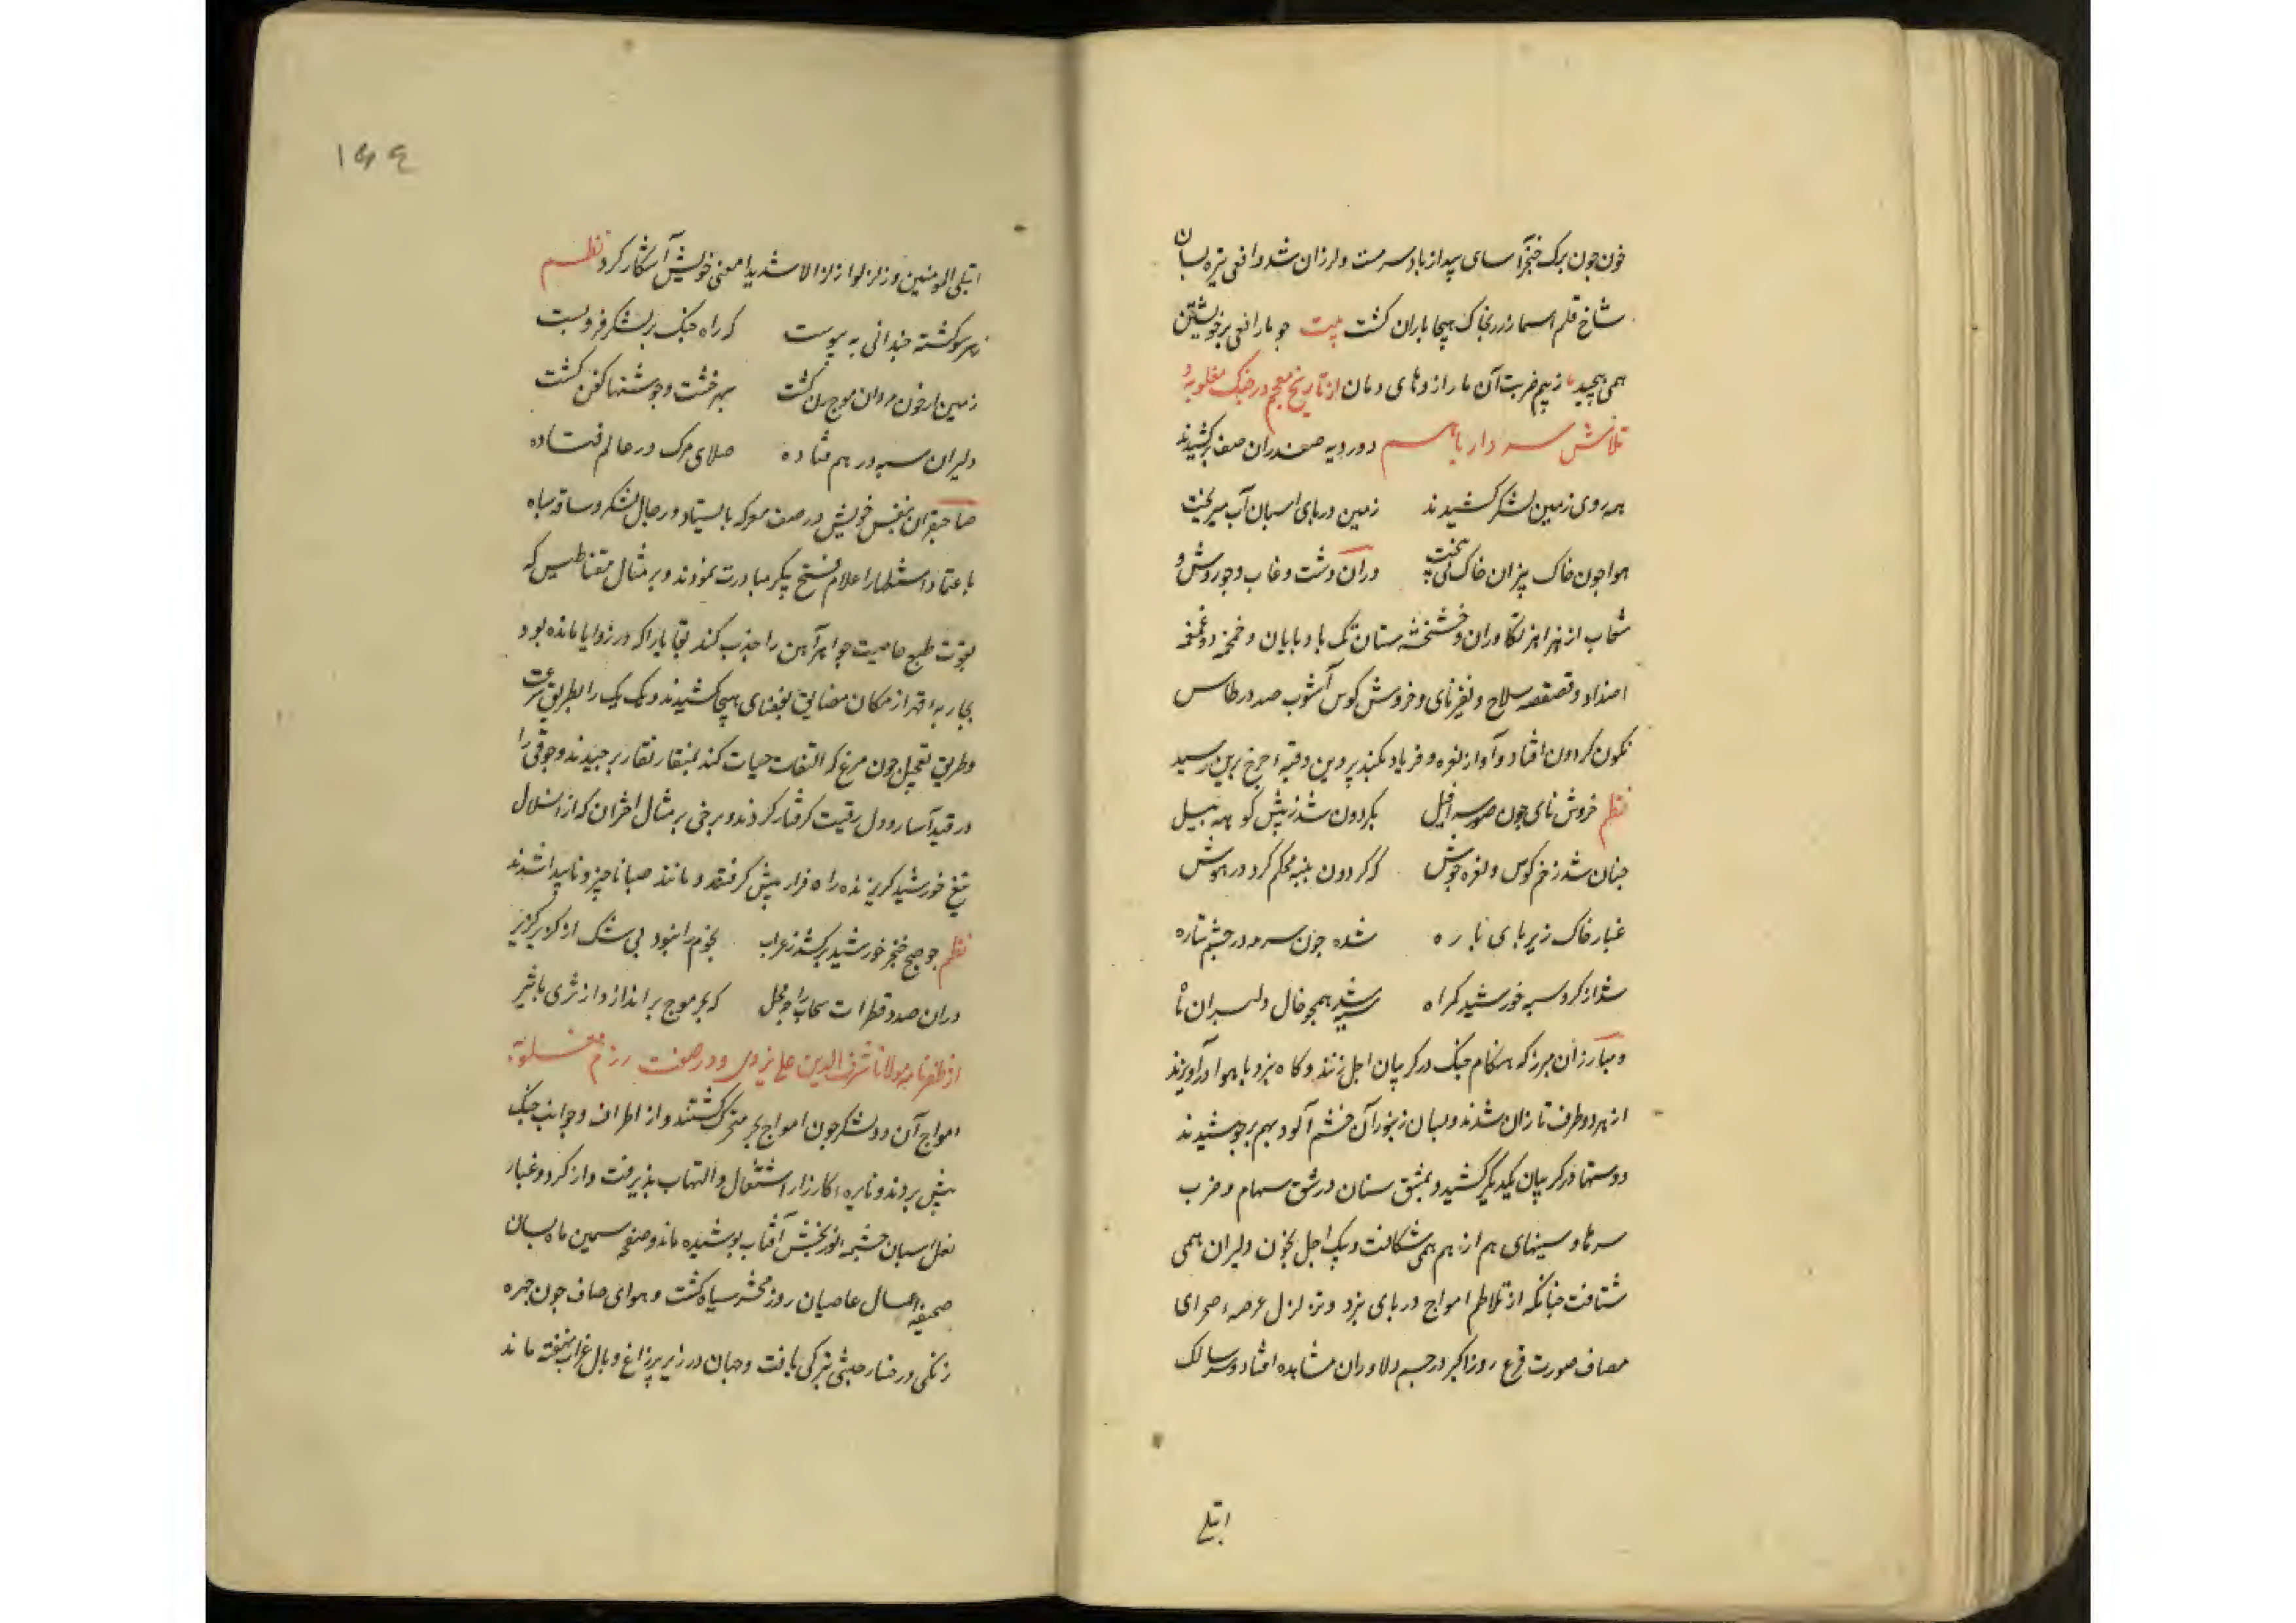 خون چون برک خنجر آسای بید از باد سرمست و لرزان شد و افعی نیزه بسان
شاخ قلم اسما زرد بخاک هیجا باران کشت بیت چو مار افعی بر خویشتن
همی پیچید ز بیم ضربت آن مار اژدهای دمان از تاریخ معجم در جنک مغلوبه و
تلاش سردار باهم دو رویه صفدران صف برکشیدند
همه روی زمین لشکر کشیدند زمین در پای اسبان آب میریخت
هوا چون خاک بیزان خاک می بیخت دران دشت وغا ب وجوروش و
سحاب از هزاهز تکاوران و خشخشه ستان تک باد پایان و خمخمه و غمغمه
اضداد و قعقعه سلاح و نفیر نای و خروش کوس آشوب صد در طاس
نکون کردون افتاد و آواز نعره و فریاد بکنبد پروین و قبهٔ چرخ برین رسید
نظم خروش نای چون صور سرافیل بکردون شد ز پیش کوهه پیل
چنان شد زخم کوس و نعره جوش که کردون پنبه محکم کرد در هوش
غبار خاک زیر پای باره شده چون سرمه در چشم ستاره
شد از کرد سپه خورشید کمراه سیه شد همچو خال دلبران ماه
و مبارزان مبرز که هنکام جنک در کریبان اجل زنند و کاه نبرد با هوا در آویزند
از هر دو طرف تازان شدند و بسان زنبوران خشم آلود بهم برجوشیدند
دوستها در کریبان یکدیکر کشید و بمشق سنان و رشق سهام و ضرب
سرها و سینهای هم از هم همی شکافت و پیک اجل بخون دلیران همی
شتافت چنانکه از تلاطم امواج دریای نبرد و تزلزل عرصهٔ صحرای
مصاف صورت فزع روز اکبر در چشم دلاوران مشاهده افتاد و سر سالک
ابتلی
۱۵۴
ابتلی المومنین و زلزلوا زلزالا شدیدا معنی خویش آشکار کرد نظم
ز هر سو کشته چندانی به پیوست که راه جنک بر لشکر فرو بست
زمین از خون مردان موج زن کشت سپر خشت و جوشنها کفن کشت
دلیران سپه در هم فتاده صلای مرک در عالم فتاده
صاحبقران بنفس خویش در صف معرکه بایستاد و رجال لشکر و ساقه سپاه
باعتماد استظهار اعلام فتح پیکر مبادرت نمودند و بر مثال مقناطیس که
بقوت طبع خاصیت جواهر آهن را جذب کند بقایا را که در زوایا مانده بود
بجاربهٔ قهر از مکان مضایق بفضای هیجا کشیدند و یک یک را بطریق سرعت
و طریق تعجیل چون مرغ که التقاط حبات کند بمنقار نقار برچیدند و جوقی را
در قید آسار و ذل رقیت کرفتار کردند و برخی بر مثال اختران که از انسلال
تیغ خورشید کریزنده راه فرار پیش کرفتند و مانند صبا ناچیز و ناپیدا شدند
نظم چو صبح خنجر خورشید برکشد ز غراب نجوم را نبود بی شک از کریز کزیر
دران صدد قطرات سحاب را چه محل که بحر موج براندازد از ثری باثیر
از ظفرنامه مولانا شرف الدین علی یزدی و در صفت رزم مغلوبه
امواج آن دو لشکر چون امواج بحر متحرک کشتند و از اطراف و جوانب جنک
پیش بردند و نایرهٔ کارزار اشتعال و التهاب پذیرفت و از کرد و غبار
نعل اسبان چشمه نوربخش آفتاب پوشیده ماند و صفحه سیمین ماه بسان
صحیفهٔ اعمال عاصیان روز محشر سیاه کشت و هوای صاف چون چهره
زنکی و رخسار حبشی تیرکی یافت و جهان در زیر پر زاغ و بال غراب نهفته ماند